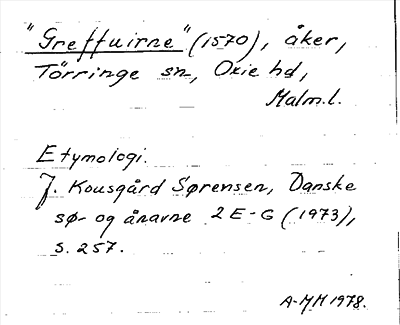 "Greffuirne" (1570), åker,
Törringe sn, Oxie hd,
Malm.l.
Etymologi.
J. Kousgård Sørensen, Danske
sø- og ånavne 2 E-G (1973),
s. 257.
A-MM 1978.